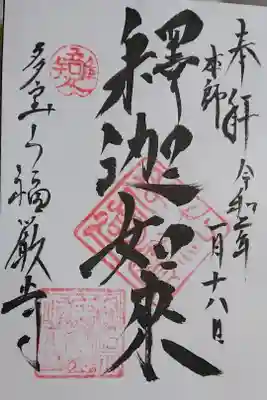 奉拝 令和二年
一月十八日
本師
釋迦如來
多宝山福厳寺